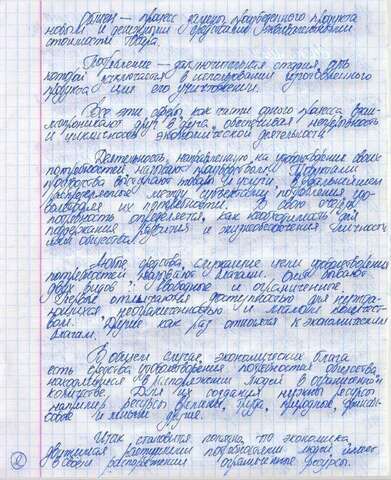 Обмен — процесс замены произведенного продукта
новым и денежными средствами эквивалентными
стоимости товара.
Потребление — заключительная стадия, суть
которой заключается в использовании изготовленного
продукта или его уничтожении.
Все эти сферы как части одного процесса взаи-
мопроникают друг в друга, обеспечивая непрерывность
и цикличность экономической деятельности.
Деятельность, направленную на удовлетворение своих
потребностей, называют производством. Результатами
производства выступают товары и услуги. В дальнейшем
распределяются между субъектами потребления, удо-
влетворяя их потребности. В свою очередь
потребность определяется, как необходимость для
поддержания развития и жизнеобеспечения личности
или общества.
Любые средства, служащие цели удовлетворения
потребностей называют благами. Они бывают
двух видов: свободные и ограниченные.
Первые отличаются доступностью для
неограниченностью и малым количест-
вом. Другие как раз относятся к экономическим
благам.
В общем случае, экономические блага
есть средства удовлетворения потребностей общества,
находящиеся в распоряжении людей в ограниченном
количестве. Для их создания нужны ресурсы
например ресурсы рекламы, труда, природное, финан-
совое и многие другие.
Итак, становится понятно, что экономика,
движимая растущими потребностями людей, имеет
в своем распоряжении ограниченные ресурсы.
2